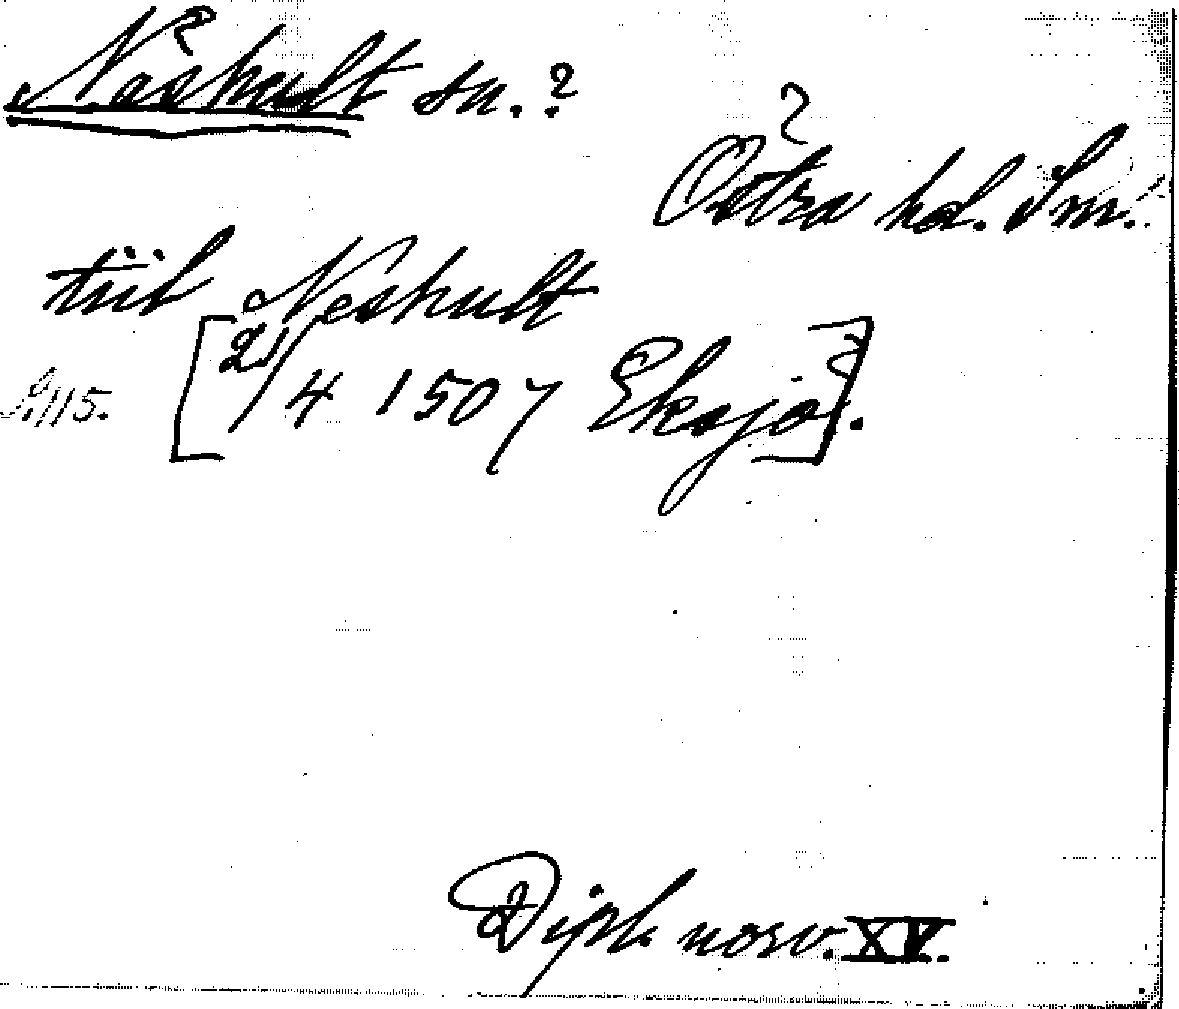 Näshult sn.?
?
Östra hd. Sm.
tiil Neshult
S. 115. [21/4 1507 Eksjö].
Dipl. norv. XV.